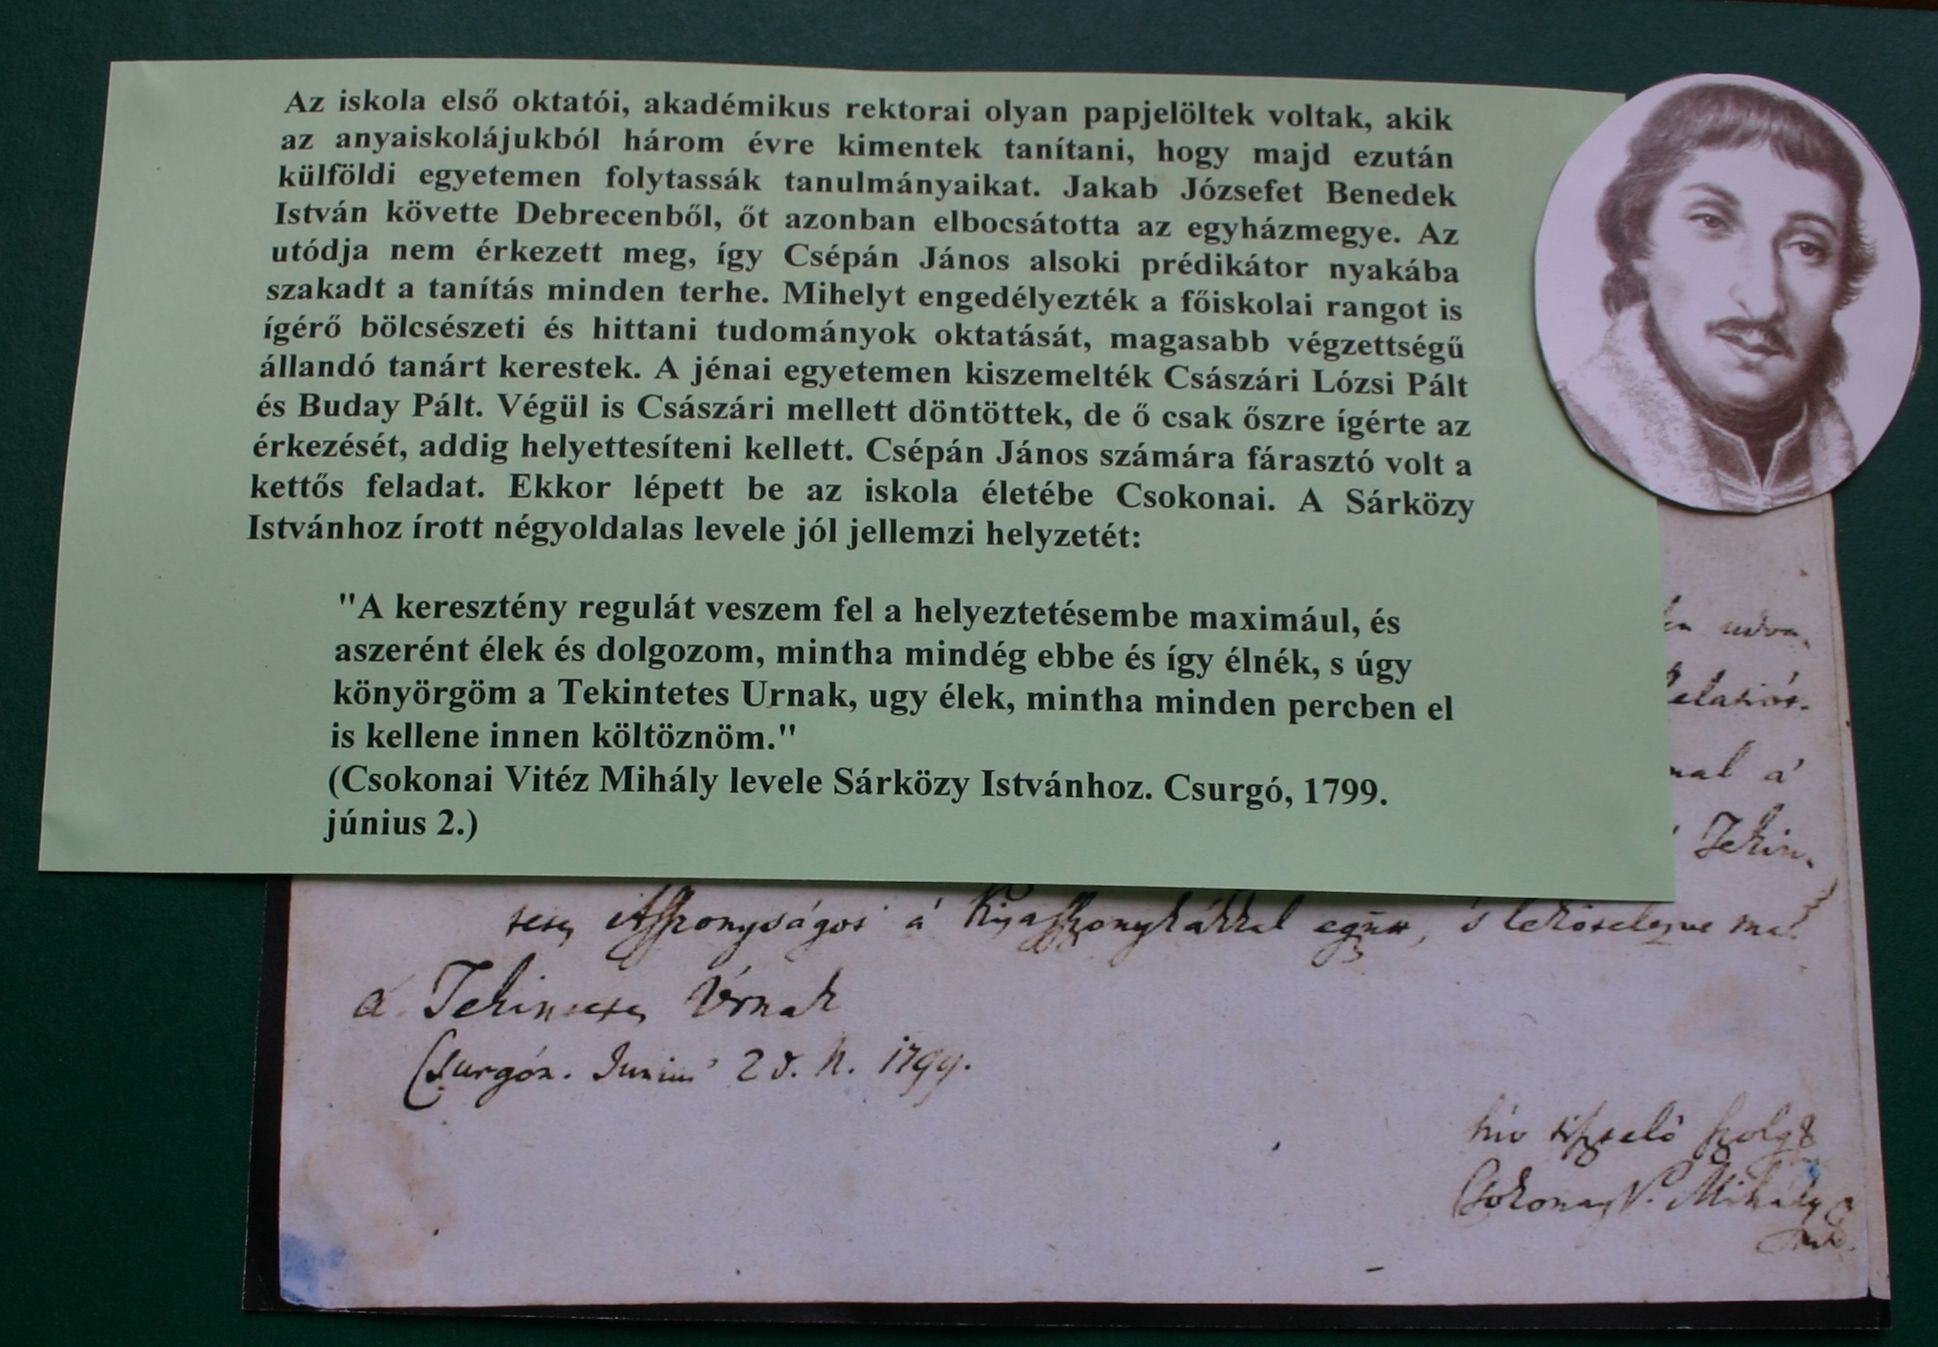 Az iskola első oktatói, akadémikus rektorai olyan papjelöltek voltak, akik
az anyaiskolájukból három évre kimentek tanítani, hogy majd ezután
külföldi egyetemen folytassák tanulmányaikat. Jakab Józsefet Benedek
István követte Debrecenből, őt azonban elbocsátotta az egyházmegye. Az
utódja nem érkezett meg, így Csépán János alsoki prédikátor nyakába
szakadt a tanítás minden terhe. Mihelyt engedélyezték a főiskolai rangot is
ígérő bölcsészeti és hittani tudományok oktatását, magasabb végzettségű
állandó tanárt kerestek. A jénai egyetemen kiszemelték Császári Lózsi Pált
és Buday Pált. Végül is Császári mellett döntöttek, de ő csak őszre ígérte az
érkezését, addig helyettesíteni kellett. Csépán János számára fárasztó volt a
kettős feladat. Ekkor lépett be az iskola életébe Csokonai. A Sárközy
Istvánhoz írott négyoldalas levele jól jellemzi helyzetét:
"A keresztény regulát veszem fel a helyeztetésembe maximául, és
aszerént élek és dolgozom, mintha mindég ebbe és így élnék, s úgy
könyörgöm a Tekintetes Urnak, ugy élek, mintha minden percben el
is kellene innen költöznöm."
(Csokonai Vitéz Mihály levele Sárközy Istvánhoz. Csurgó, 1799.
június 2.)
nal á
Tekin-
tetes Aszszonyságot á Kisaszszonykákkal együtt, 's
a Tekintetes Úrnak
Csurgón. Junius 2 d. h. 1799.
hív tisztelő szolgája
Csokonay V. Mihály